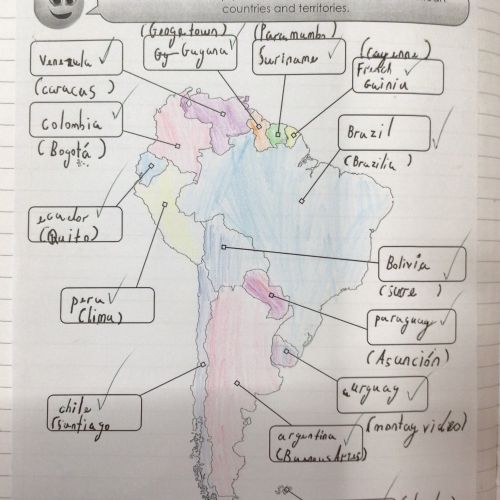 countries and territories.
(Georgetown)
Gy Guyana
(Paramumbo)
Suriname
(Cayenne)
French
Guinia
Venezula
(caracas)
Colombia
(Bogotá)
Brazil
(Brazilia)
ecuador
(Quito)
Bolivia
(sucre)
peru
(lima)
paraguay
(Asunción)
urguay
(montayvideo)
chile
(santiago
argentina
(BuenusAires)